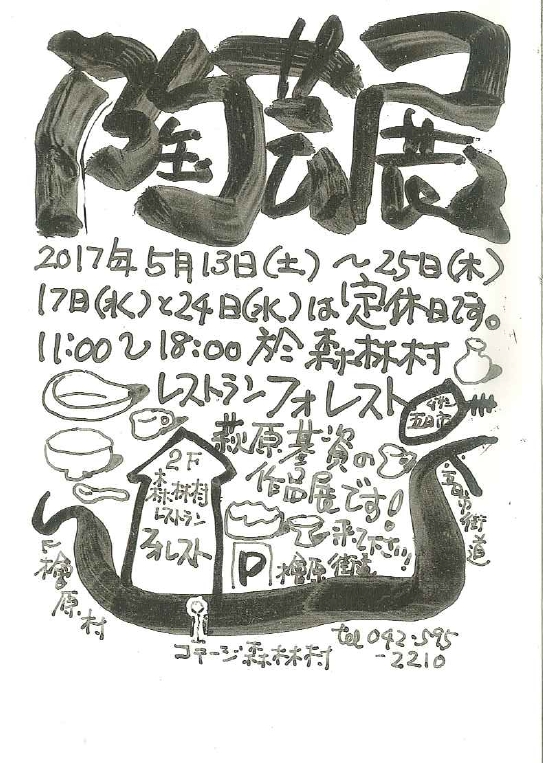 陶芸展
2017年5月13日(土)～25日(木)
17日(水)と24日(水)は定休日です。
11:00～18:00 於 森林村
レストランフォレスト
武蔵五日市
萩原基資の
作品展です!
来て下さい!!
2F
森林村
レストラン
フォレスト
P
檜原街道
五日市街道
檜原村
コテージ森林村
tel 042-595
-2210